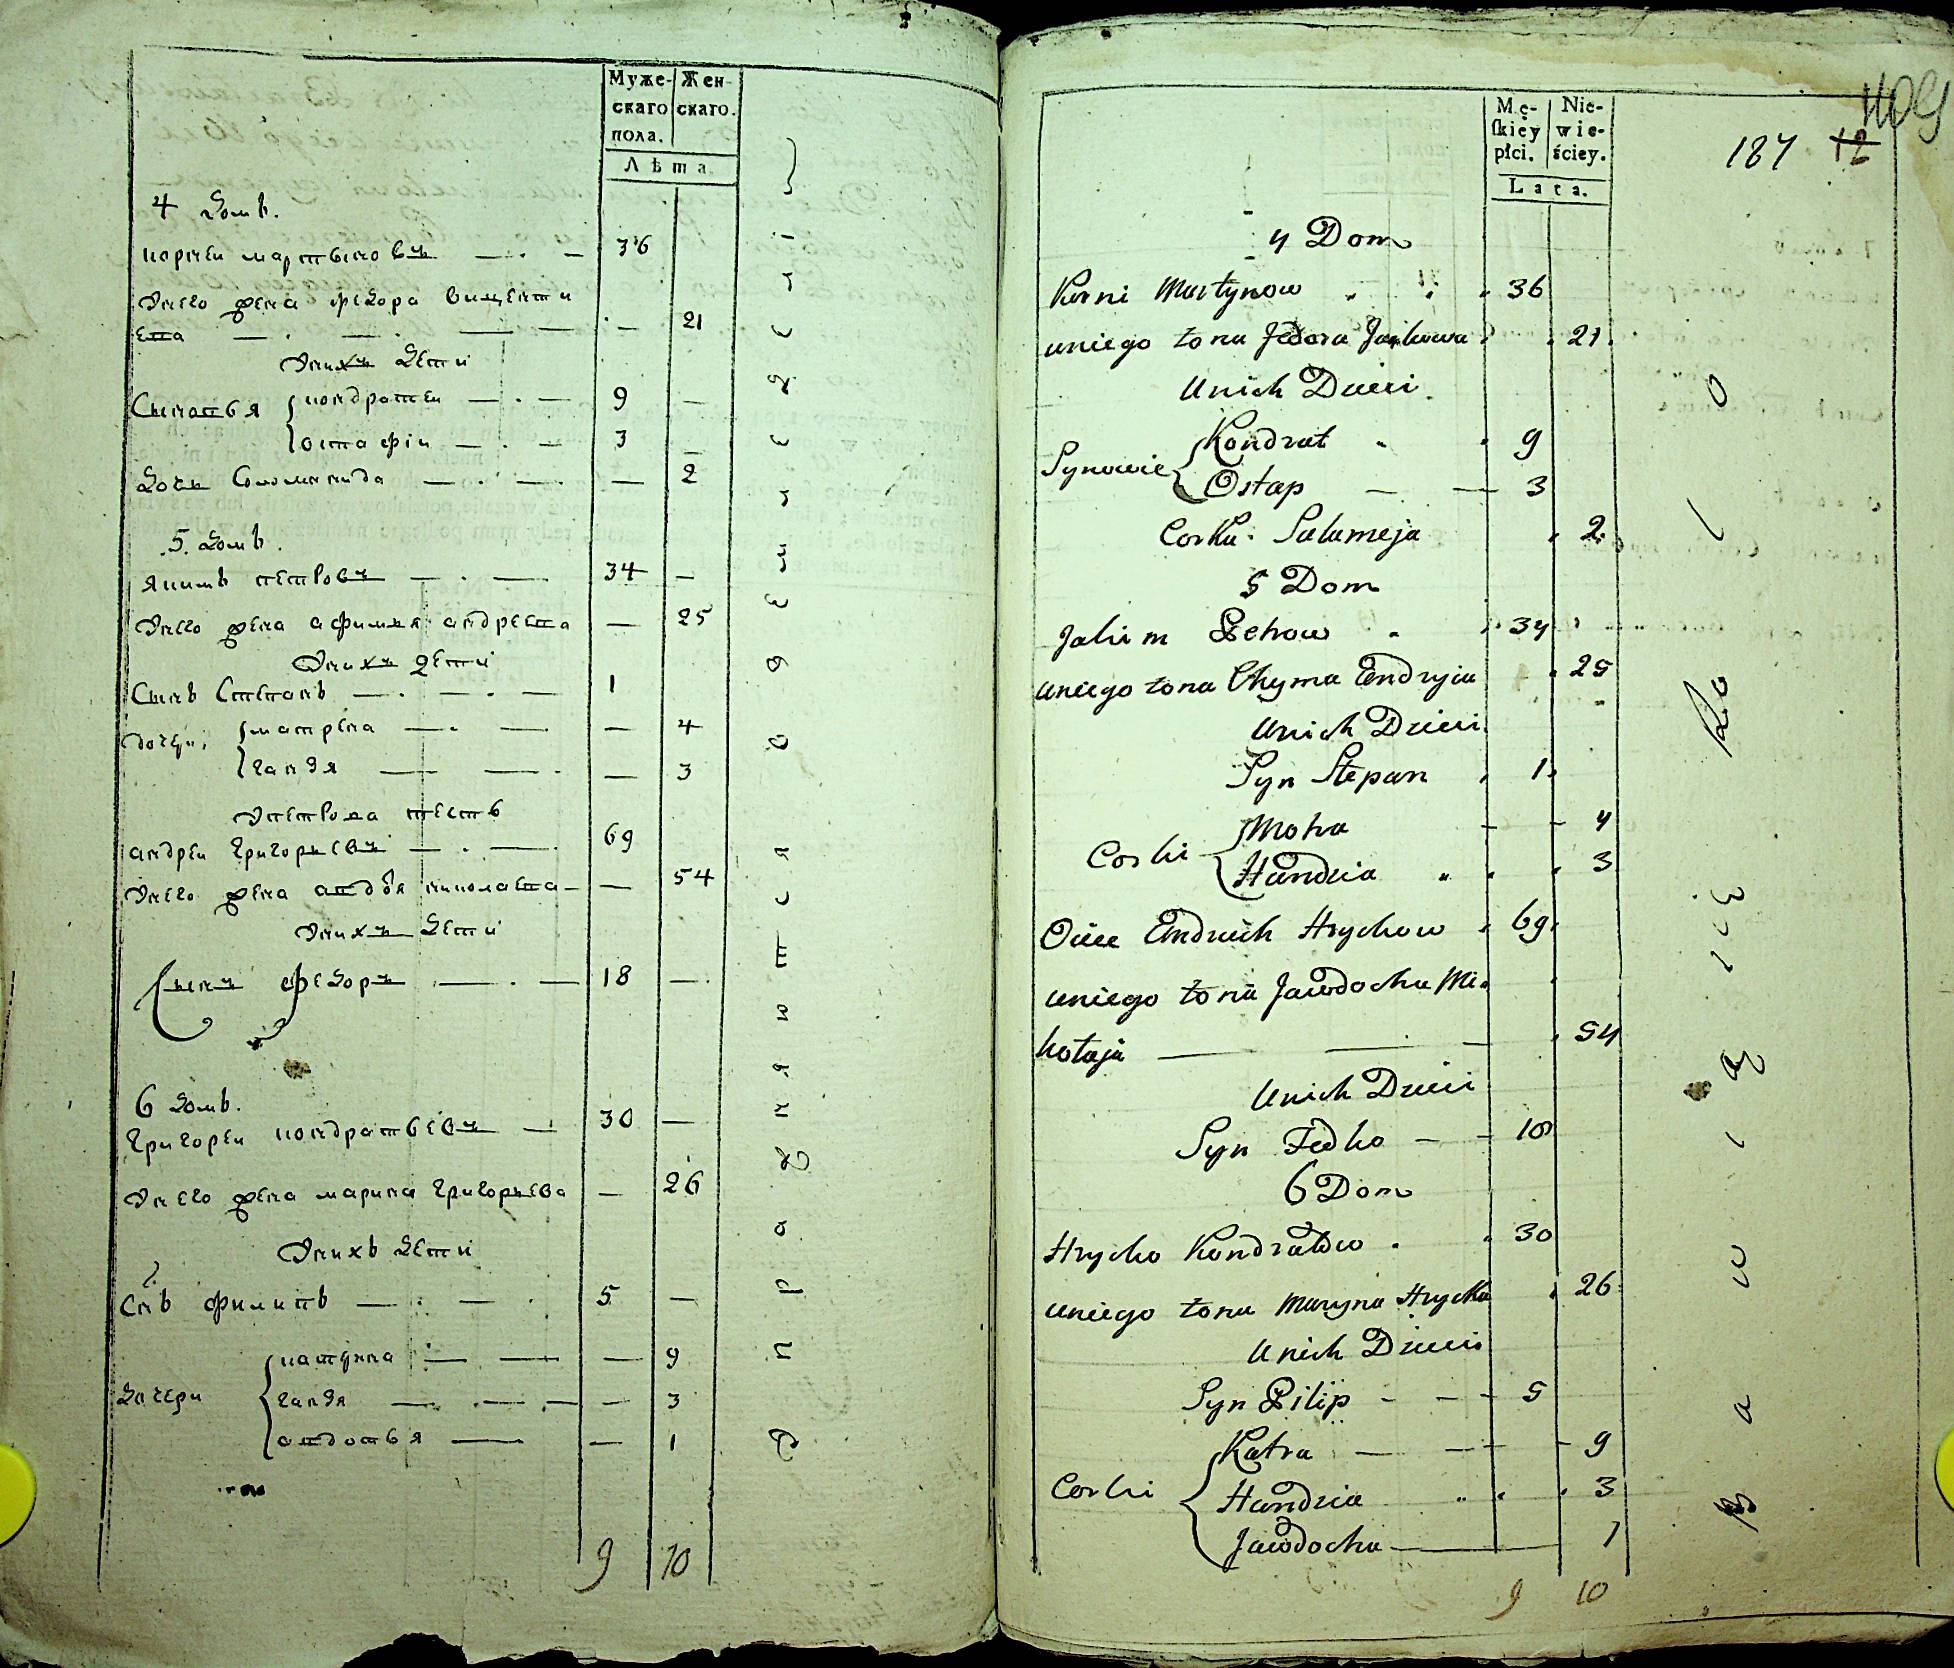 Муже-
скаго
пола.
Жен-
скаго.
Лѣта.
4 домъ.
корнеи мартыновъ 36
Унего жена федора
21
Унихъ дети
Сыновья кондратеи 9
остафіи 3
дочь 2
5. домъ.
якимъ петровъ 34
Унего жена афимия андреева 25
Унихъ дети
Сынъ Степанъ 1
дочери матрена 4
гандзя 3
тесть
андреи григорьевъ 69
Унего жена авдотья николаева 54
Унихъ дети
Сынъ федоръ 18
6 домъ.
григореи кондратьевъ 30
Унего жена марина григорьева 26
Унихъ дети
Снъ филипъ 5
дочери катерина 9
гандзя 3
авдотья 1
9 10
409
187 12
Mę-
skiey
płci.
Nie-
wie-
ściey.
Lata.
4 Dom
Korni Martynow 36
uniego żona Fedora Jankowa 21
Unich Dzieci
Synowie Kondrat 9
Ostap 3
Corka Salameja 2
5 Dom
Jakim Petrow 34
uniego żona Chyma Endryia 25
Unich Dzieci
Syn Stepan 1
Corki Motra 4
Handzia 3
Ociec Endruch Hrychow 69
uniego żona Jawdocha Mi-
kołaja 54
Unich Dzieci
Syn Fedko 18
6 Dom
Hrycko Kondratow 30
uniego żona Maryna Hrycka 26
Unich Dzieci
Syn Pilip 5
Corki Katra 9
Handzia 3
Jawdocha 1
9 10